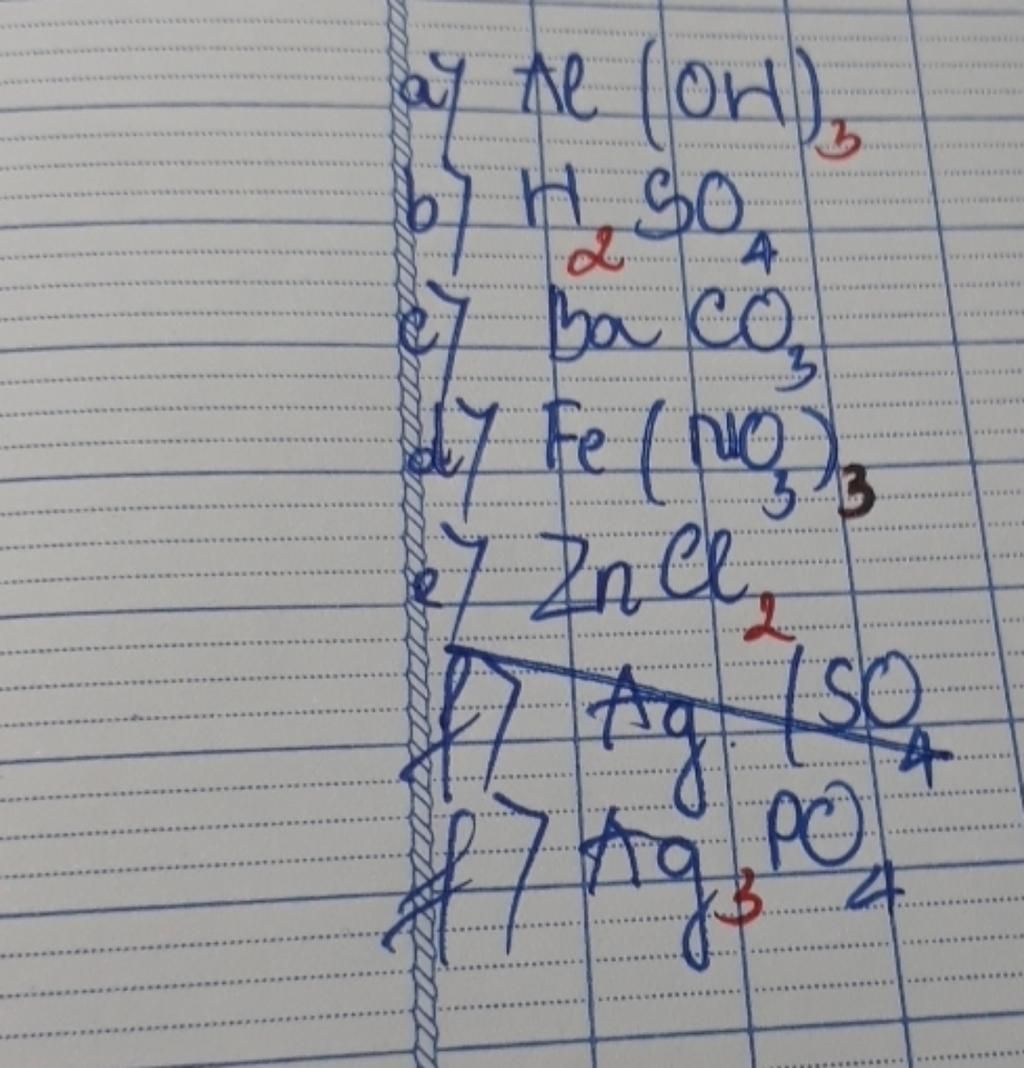 a) Al (OH)3
b) H2 SO4
c) Ba CO3
d) Fe (NO3)3
e) Zn Cl2
f) Ag (SO4
f) Ag3 PO4